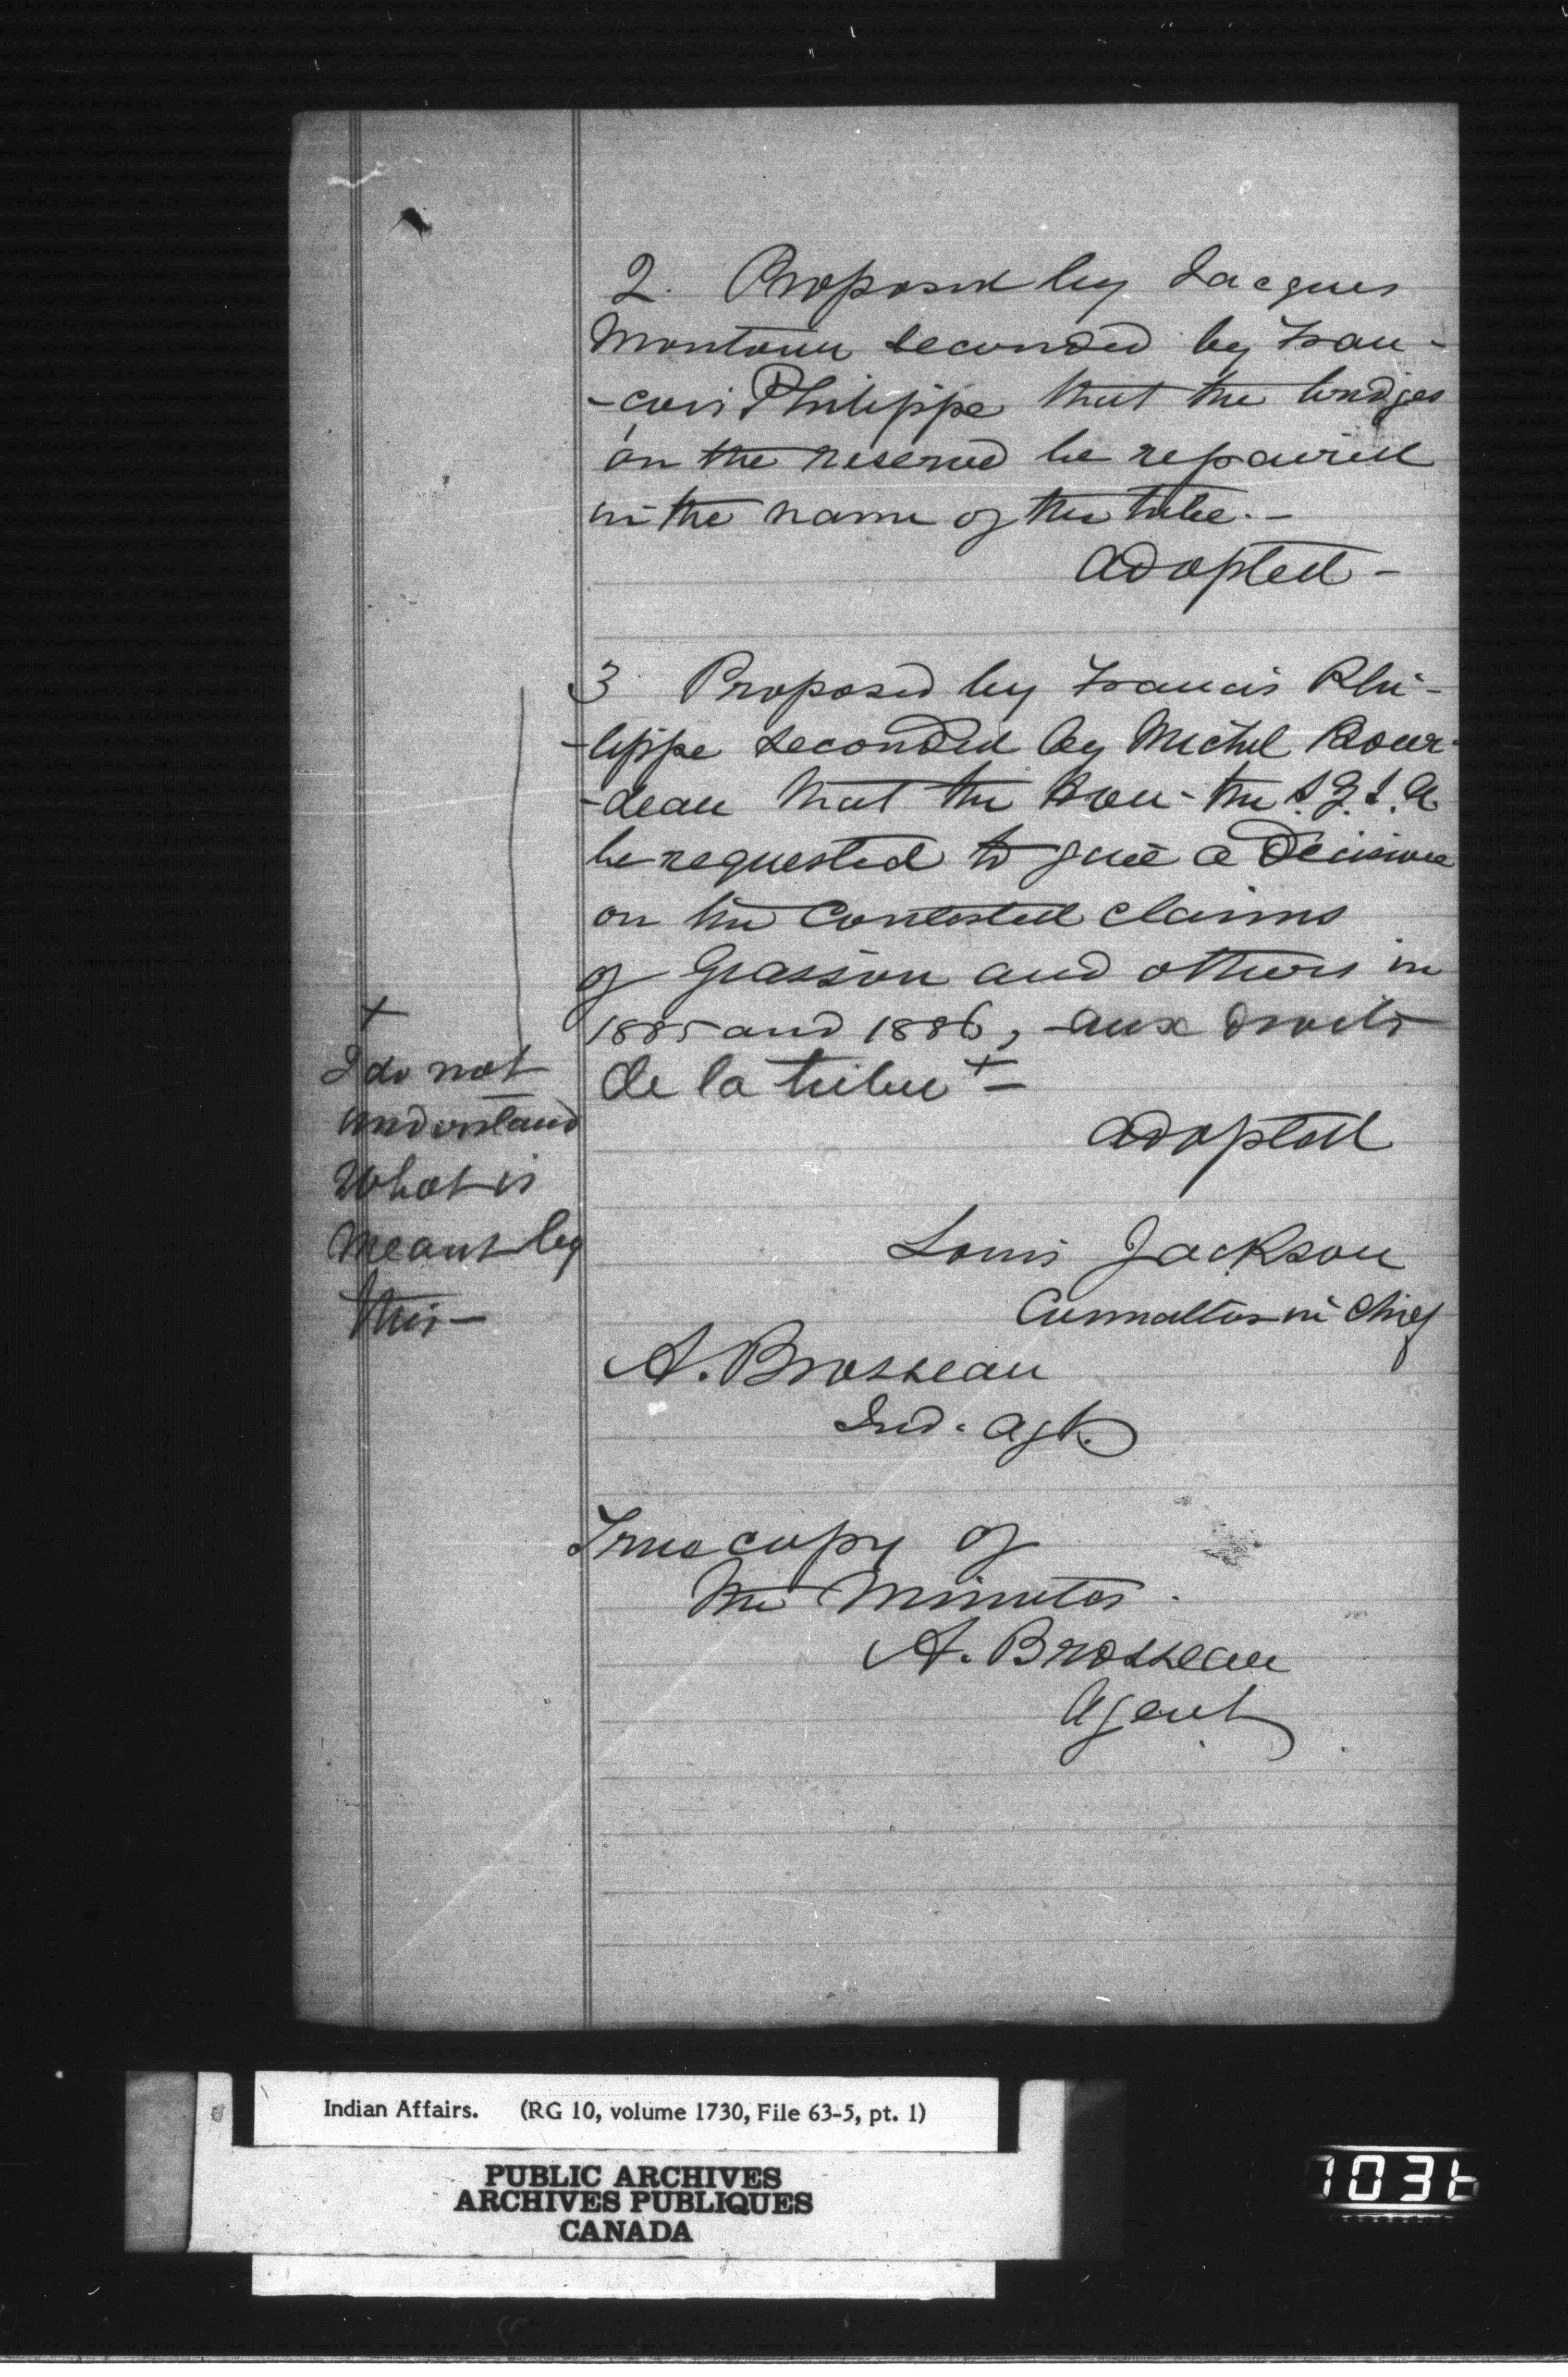 2. Proposed by Jacques
Montour seconded by Fran-
-çois Philippe that the bridges
on the reserve be repaired
in the name of the tribe.-
adopted -
3 Proposed by Francis Phi-
-lippe seconded by Michel Bour-
-deau that the Hon- the S.G.I.A
be requested to give a decision
on the Contested claims
of Giasson and others in
1885 and 1886, -aux droits
de la tribu + -
adopted
+
I do not
understand
What is
meant by
this-
Louis Jackson
in Chief
A. Brosseau
Ind. Agt.
True copy of
the Minutes.
A. Brosseau
Agent
Indian Affairs. (RG 10, volume 1730, File 63-5, pt. 1)
PUBLIC ARCHIVES
ARCHIVES PUBLIQUES
CANADA